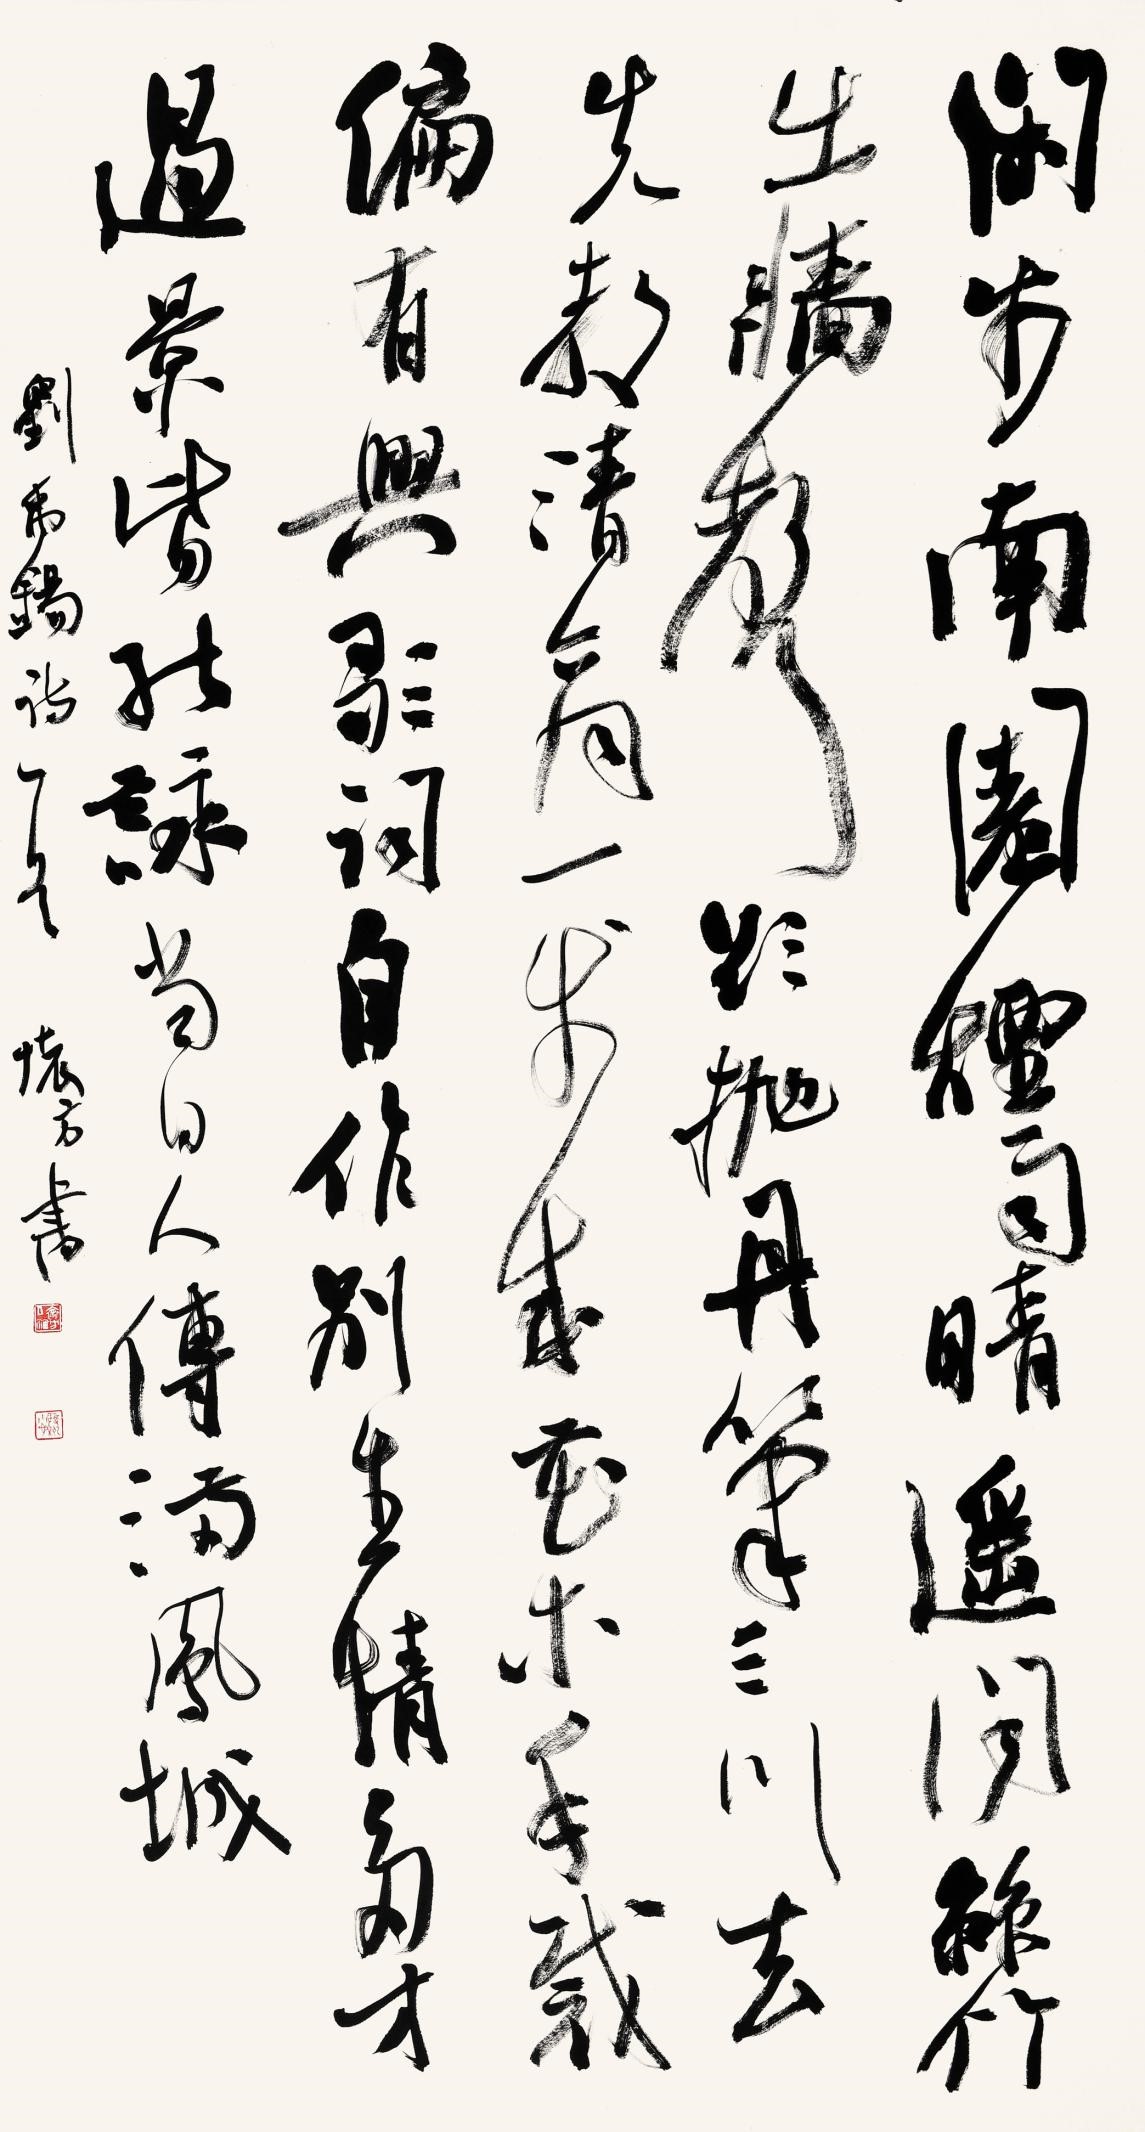 閑步南園煙雨晴遥闻絲竹
出牆聲欲抛丹筆三川去
先教清商一步成花木手栽
偏有興歌詞自作别生情多才
遇景皆能詠當日人傳滿鳳城
劉禹錫詩一首 懷方書